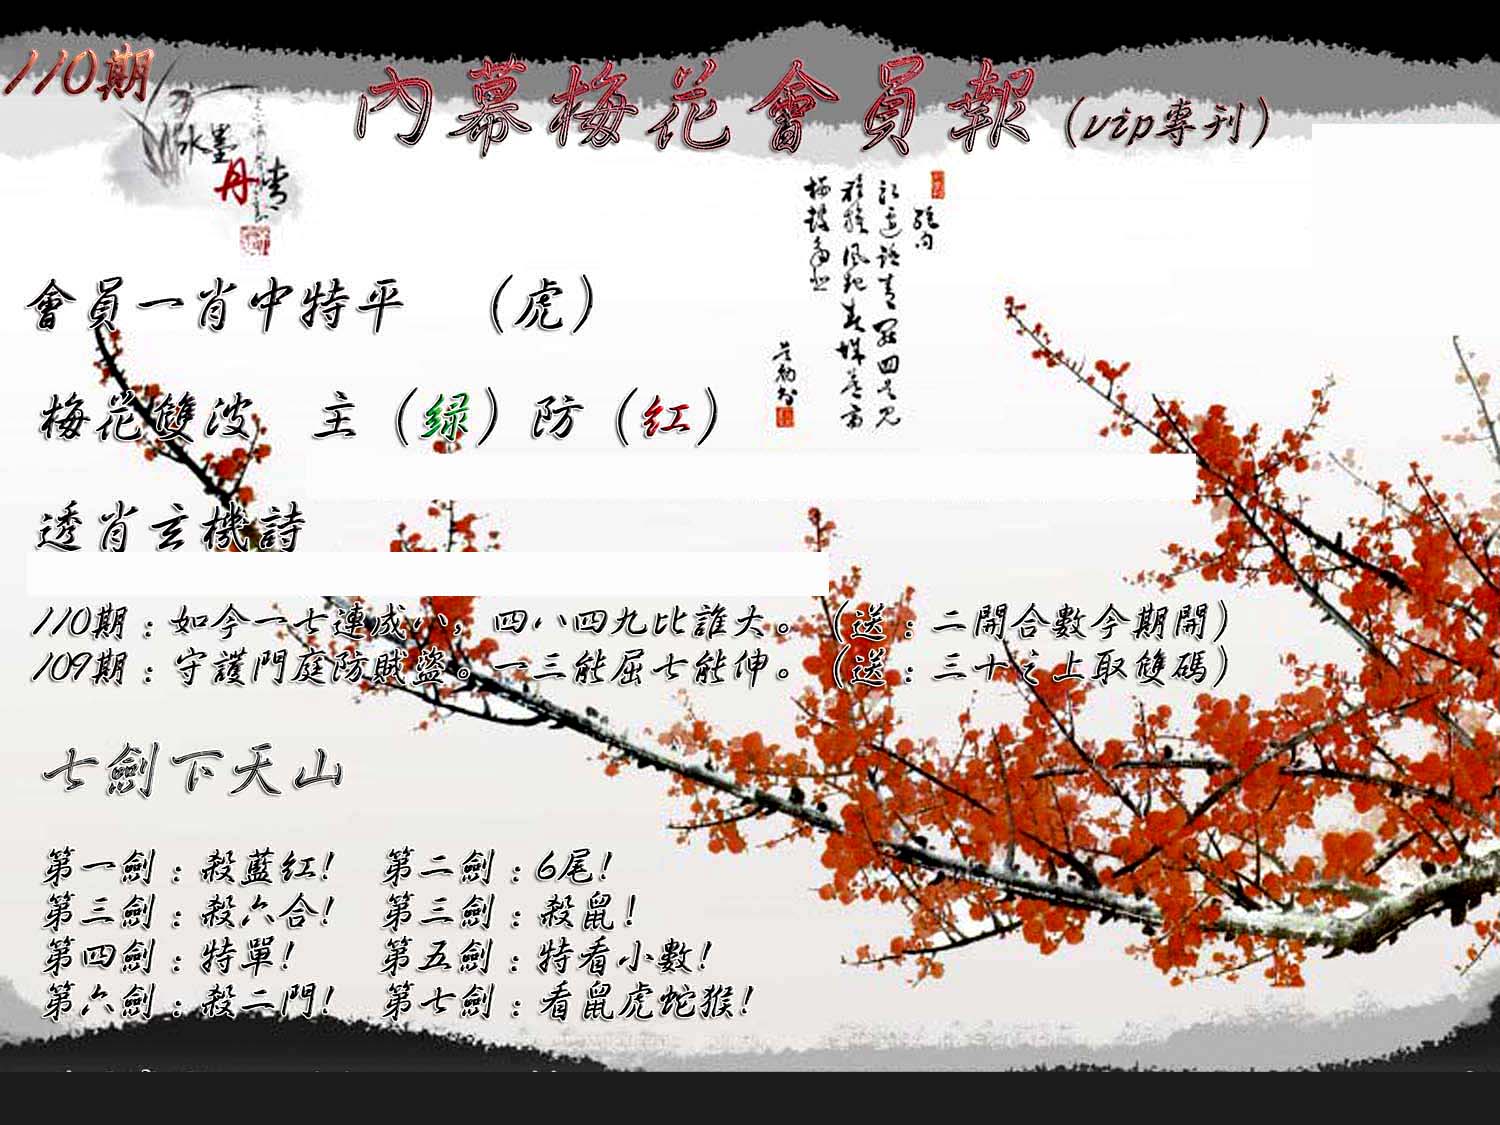 110期
內幕梅花會員報(vip專刊)
水墨
丹青
會員一肖中特平 (虎)
梅花雙波 主(绿)防(红)
透肖玄機詩
110期:如今一七連成八,四八四九比誰大。(送:二開合數今期開)
109期:守護門庭防賊盜。一三能屈七能伸。(送:三十之上取雙碼)
七劍下天山
第一劍:殺藍紅! 第二劍:6尾!
第三劍:殺六合! 第三劍:殺鼠!
第四劍:特單! 第五劍:特看小數!
第六劍:殺二門! 第七劍:看鼠虎蛇猴!